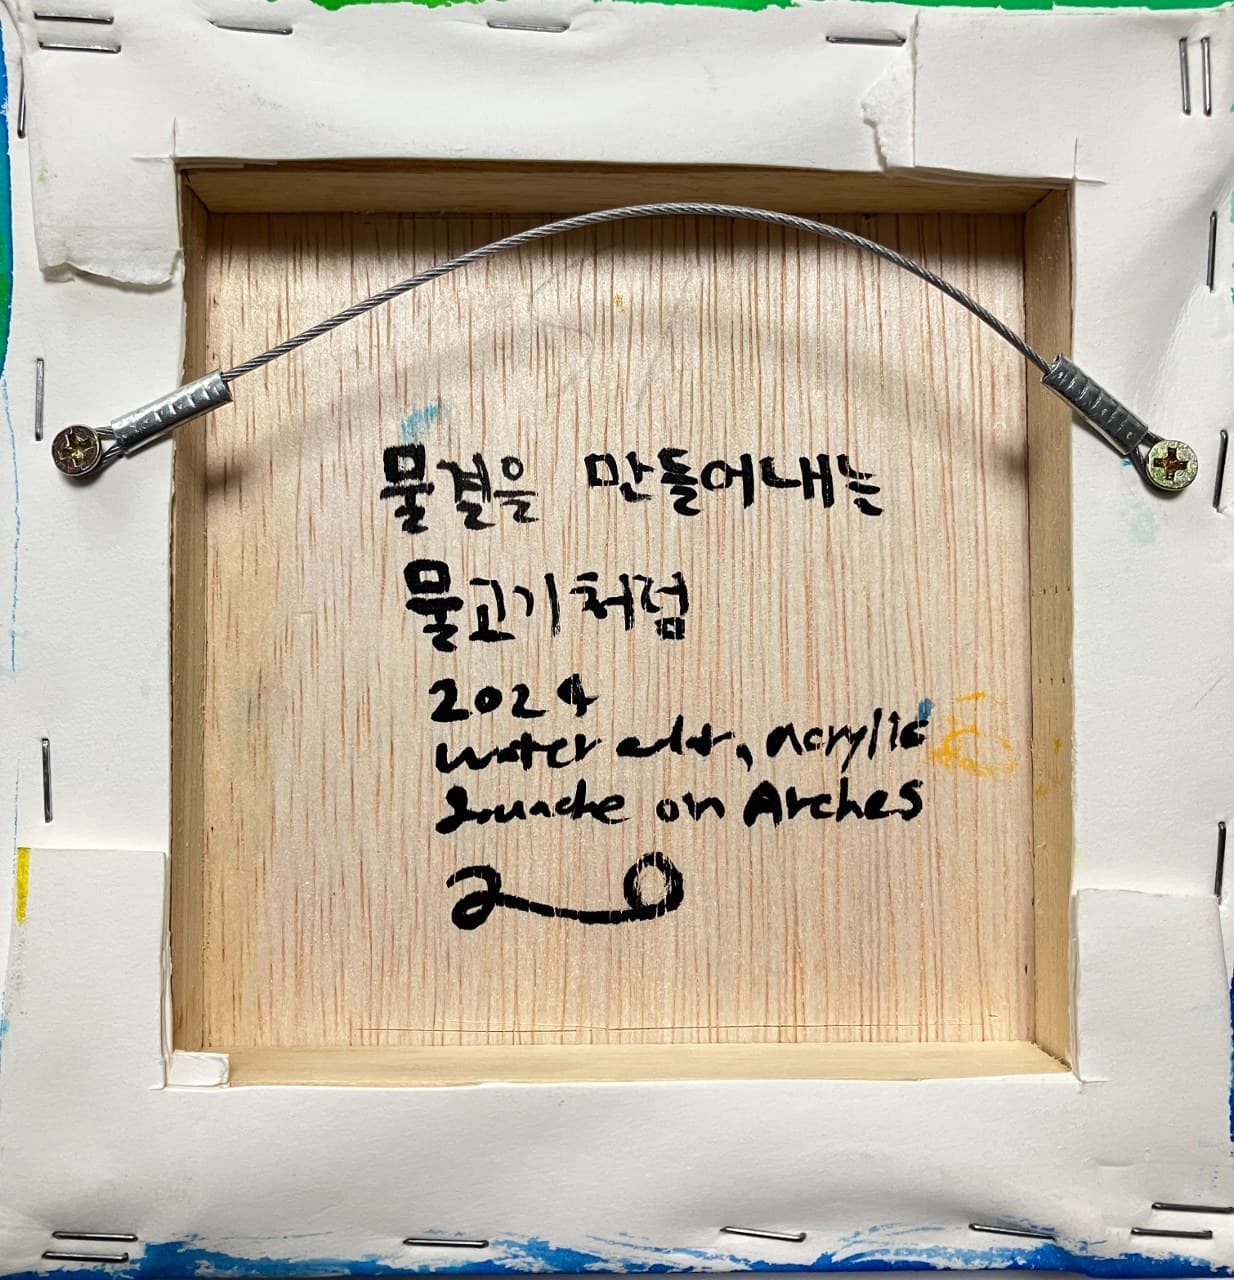 물결을 만들어내는
물고기처럼
2024
water color, acrylic
gouache on Arches